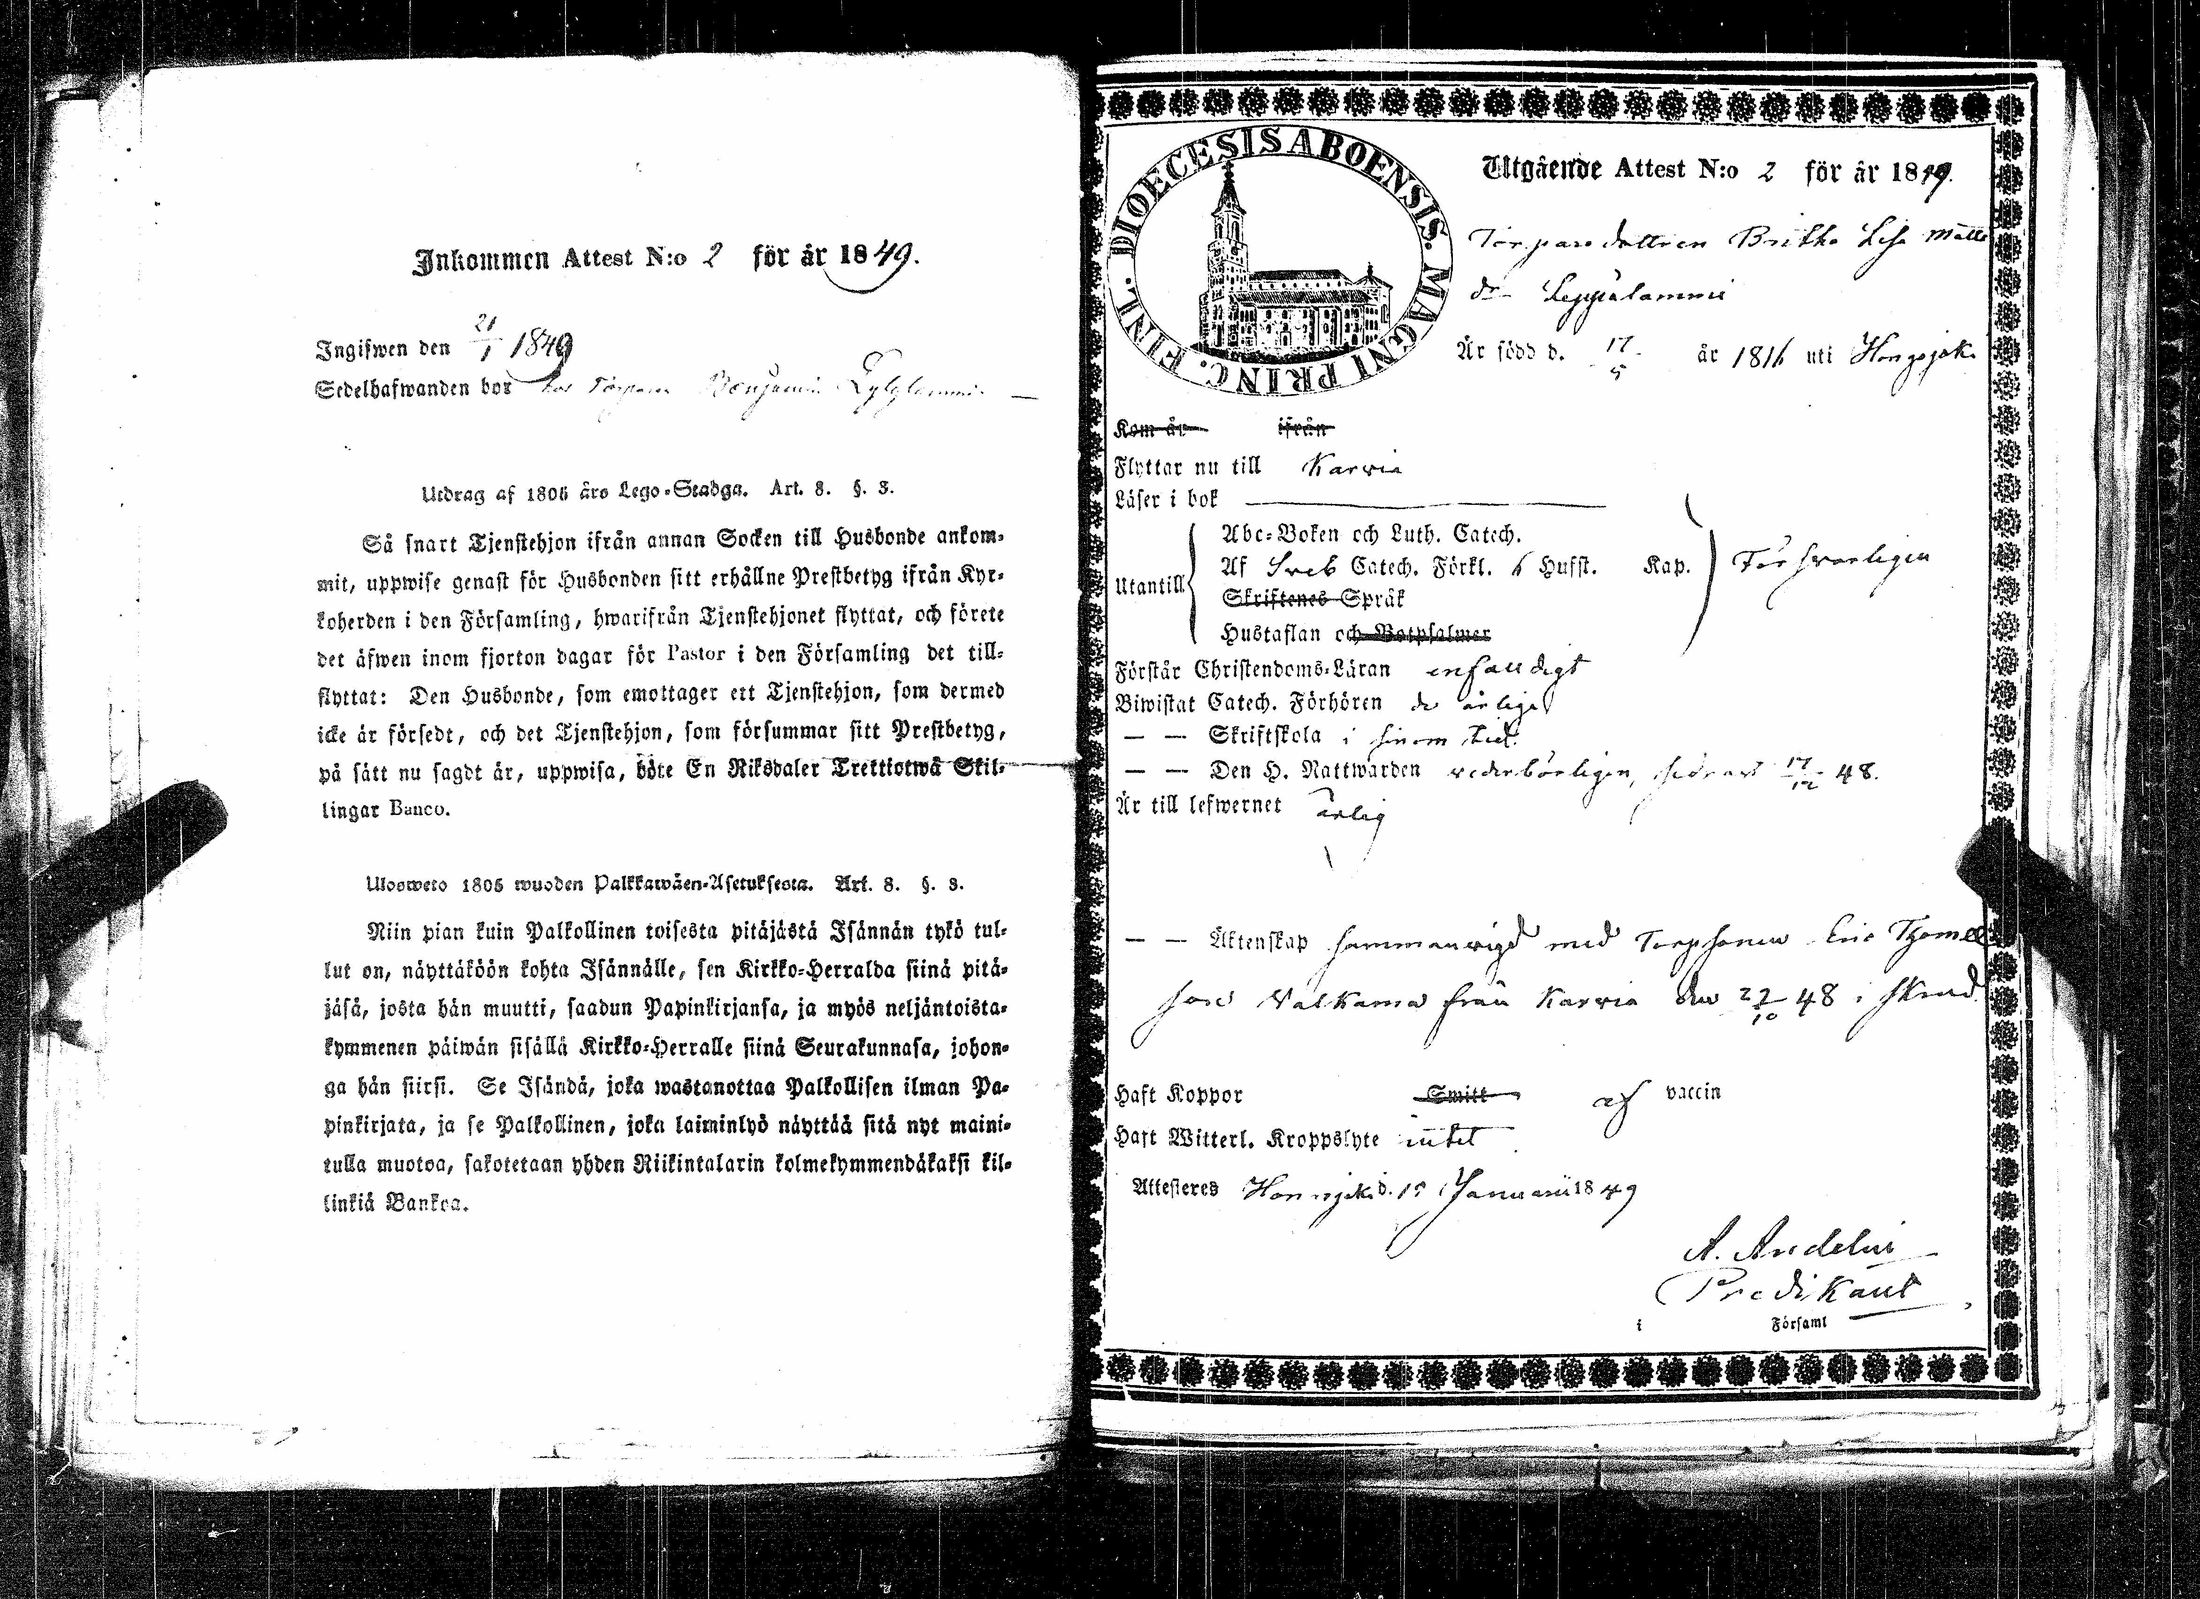 Inkommen Attest N:o 2 för år 1849.
Ingifwen den 21/1 1849
Sedelhafwanden bor hos Torparen Benjamin
Utdrag af 1805 års Lego-Stadga. Art. 8. §. 3.
Så snart Tjenstehjon ifrån annan Socken till Husbonde ankom-
mit, uppwise genast för Husbonden sitt erhållne Prestbetyg ifrån Kyr-
koherden i den Församling, hwarifrån Tjenstehjonet flyttat, och förete
det äfwen inom fjorton dagar för Pastor i den Församling det till-
flyttat: Den Husbonde, som emottager ett Tjenstehjon, som dermed
icke är försedt, och det Tjenstehjon, som försummar sitt Prestbetyg,
på sätt nu sagdt är, uppwisa, böte En Riksdaler Trettiotwå Skil-
lingar Banco.
Ulosweto 1805 wuoden Palkkawäen-Asetuksesta. Art. 8. §. 3.
Niin pian kuin Palkollinen toisesta pitäjästä Isännän tykö tul-
lut on, näyttäköön kohta Isännälle, sen Kirkko-Herralda siinä pitä-
jäsä, josta hän muutti, saadun Papinkirjansa, ja myös neljäntoista-
kymmenen päiwän sisällä Kirkko-Herralle siinä Seurakunnasa, johon-
ga hän siirsi. Se Isändä, joka wastanottaa Palkollisen ilman Pa-
pinkirjata, ja se Palkollinen, joka laiminlyö näyttää sitä nyt maini-
tulla muotoa, sakotetaan yhden Riikintalarin kolmekymmendäkaksi kil-
linkiä Bankoa.
DIOECESIS ABOENSIS. MAGNI PRINC. FINL.
Utgående Attest N:o 2 för år 1849.
Torparedottren Britha Lisa Matts
dr Leppälammi
Är född d. 17/5 år 1816 uti Hongojoki
Kom år ifrån
Flyttar nu till Karvia
Läser i bok
Utantill
Abc-Boken och Luth. Catech.
Af Sveb Catech. Förkl. 6 Hufst. Kap. Försvarligen
Skriftenes Språk
Hustaflan och Botpsalmer
Förstår Christendoms-Läran enfaldigt
Biwistat Catech. Förhören de årliga
— — Skriftskola i sinom tid.
— — Den H. Nattwarden vederbörligen, sednast 17/12 48.
Är till lefwernet ärlig
— — Äktenskap sammanvigd med Torpsonen Eric Thomas
son Valkama från Karvia den 22/10 48
Haft Koppor Smitt af vaccin
Haft Witterl. Kroppslyte intet
Attesteres d. Januarii 1849
A. Andelin
Predikant
i Församl